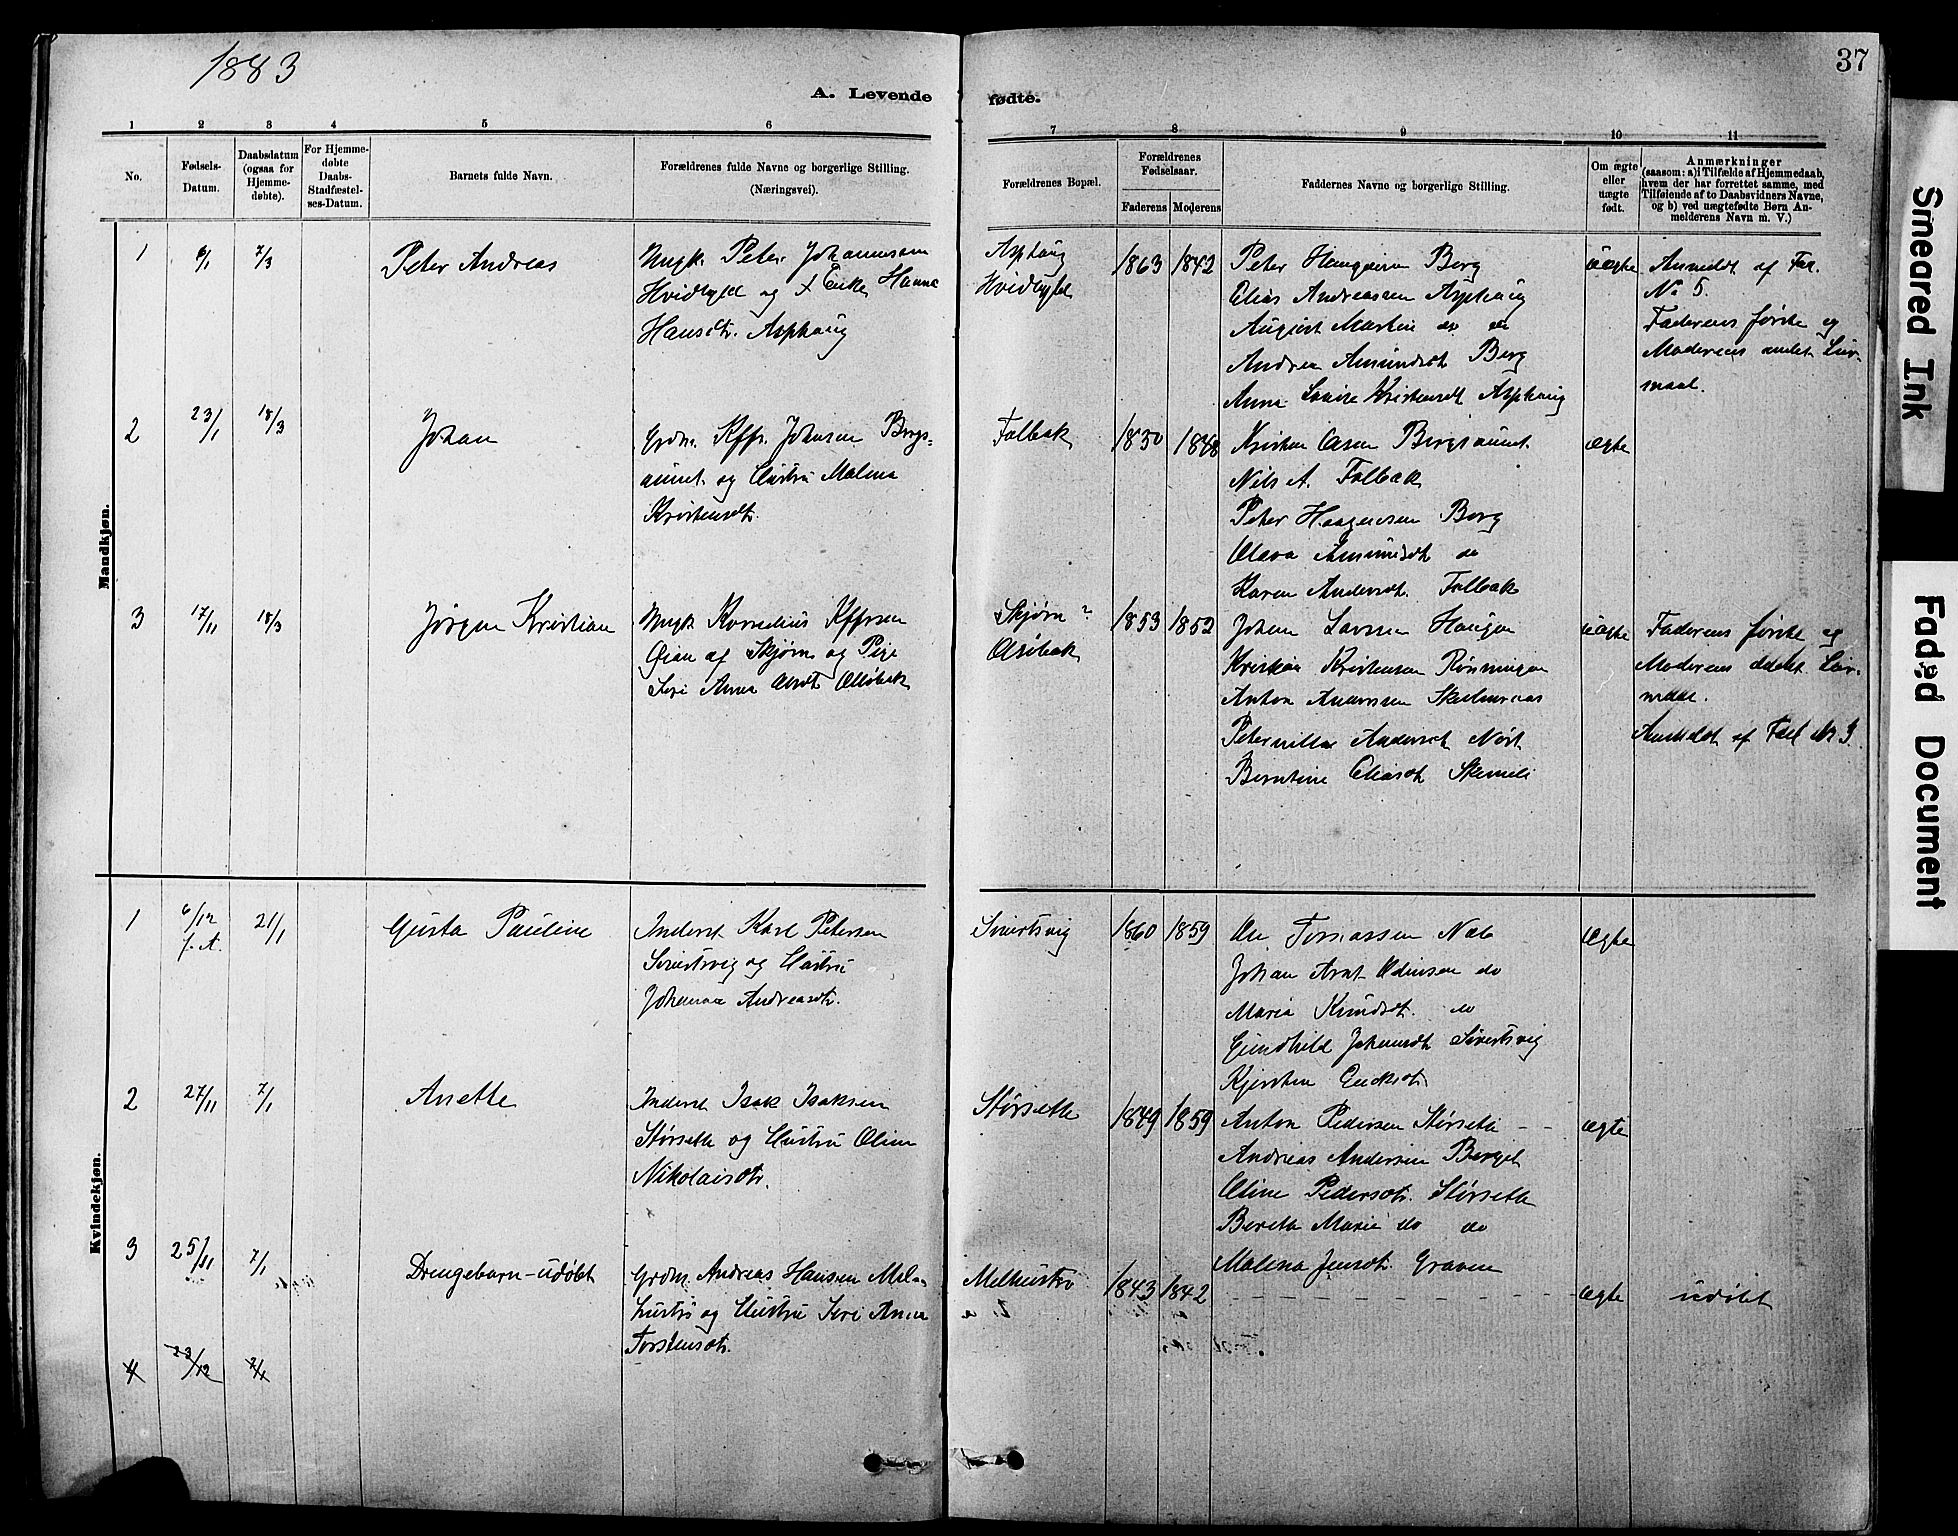 1883
37
A. Levende
fødte.
1 2 3 4 5 6
7 8 9 10 11
No.
Fødsels-
Datum.
Daabsdatum
(ogsaa for
Hjemme-
døbte).
For Hjemme-
døbte
Daabs-
Stadfæstel-
ses-Datum.
Barnets fulde Navn.
Forældrenes fulde Navne og borgerlige Stilling.
(Næringsvei).
Forældrenes Bopæl.
Forældrenes
Fødselsaar.
Faderens Moderens
Faddernes Navne og borgerlige Stilling.
Om ægte
eller
uægte
født.
Anmærkninger
(saasom: a) i Tilfælde af Hjemmedaab,
hvem der har forrettet samme, med
Tilføiende af to Daabsvidners Navne,
og b) ved uægtefødte Børn An-
melderens Navn m. V.)
Mandkjøn.
1 6/1 7/3 Peter Andreas
Ungk. Peter Johannesen
Hvidbyld og Enke Hanna
Hansdtr. Asphaug
Asphaug
Hvidbyld
1863 1842
Peter Haagensen Berg
Elias Andreassen Asphaug
August Martin do do
Andrea Amundsdt Berg
Anna Lovise Kristensdt Asphaug
uægte
Anmeldt af Fad.
No 5.
Faderens første og
Moderens andet Leir-
maal.
2 23/1 18/3 Johan
Grdm. Kffr. Johnsen Bergs-
aunet og Hustru Malena
Kristensdt.
Folbak
1850 1848
Kristen Olsen Bergsaunet
Nils A. Folbak
Peter Haagensen Berg
Olava Amundsdt do
Karen Andersdt. Folbak
ægte
3 17/11 18/3 Jørgen Kristian
Ungk. Kornelius Kffrsen
Øian af Skjørn og Pige
Seri Anna Olsdt
Skjørn
1853 1852
Johan Larssen Haugen
Kristian Kristensen Rønningen
Anton Andersen
Peternille Andersdt
Berntine Eliasdt
uægte
Faderens første og
Moderens andet Leir-
maal.
Anmeldt af Fad No 3.
Kvindekjøn.
1 6/12 f. A. 21/1 Gusta Pauline
Inderst Karl Petersen
Sivertsvig og Hustru
Johanna Andreasdtr.
Sivertsvig
1860 1859
Ole Tomassen Næs
Johan Arnt Odinsen do
Maria Knudsdt. do
Gundhild Johansdt Sivertsvig
Kjersten
ægte
2 27/11 7/1 Anette
Inderst Isak Isaksen
Størseth og Hustru Oline
Nikolaisdtr.
Størseth
1849 1859
Anton Pedersen Størseth - -
Andreas Andersen Berget
Oline Pedersdtr. Størseth
Bereth Marie do do
Malena Jensdt. Graven
ægte
3 25/11 7/1 Drengebarn-udøbt
Grdm. Andreas Hansen Mel-
hustrø og Hustru Seri Anna
Torstensdtr.
Melhustrø
1843 1842
ægte
udøbt
4 23/12
Smeared Ink
Faded Document